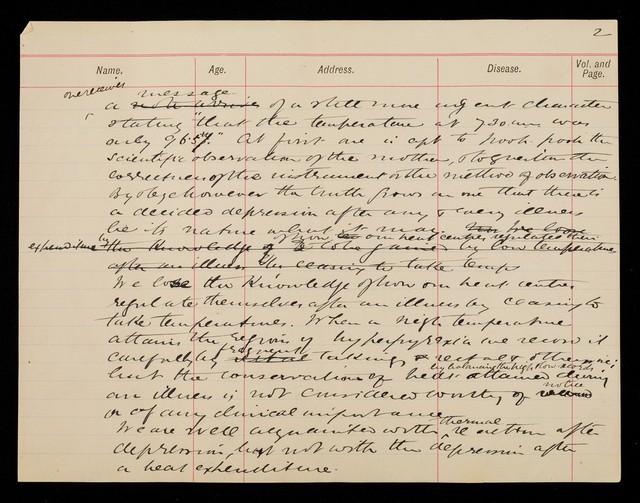 2
Name. Age. Address. Disease. Vol. and Page.
one receives message
a note arrives of a still more urgent character
stating "that the temperature at 7.30 am. was
only 96.5°." At first one is apt to pooh pooh the
scientific observation of the mother, & to question the
correctness of the instrument or the method of observation.
By & bye however the truth grows on one that there is
a decided depression after any & every illness
be its nature what it may.
of how our heat centres regulated their
expenditure by the knowledge of to be gained by low temperature
after an illness by ceasing to take temps
We lose the knowledge of how our heat centres
regulate themselves after an illness by ceasing to
take temperatures. When a high temperature
attains the region of hyperpyrexia we record it
carefully by frequent takings, rectal & otherwise;
by balancing the high & low records
but the conservation of heat attained during
notice
an illness is not considered worthy of
or of any clinical importance.
thermal
We are well acquainted with reaction after
depression, but not with the depression after
a heat expenditure.